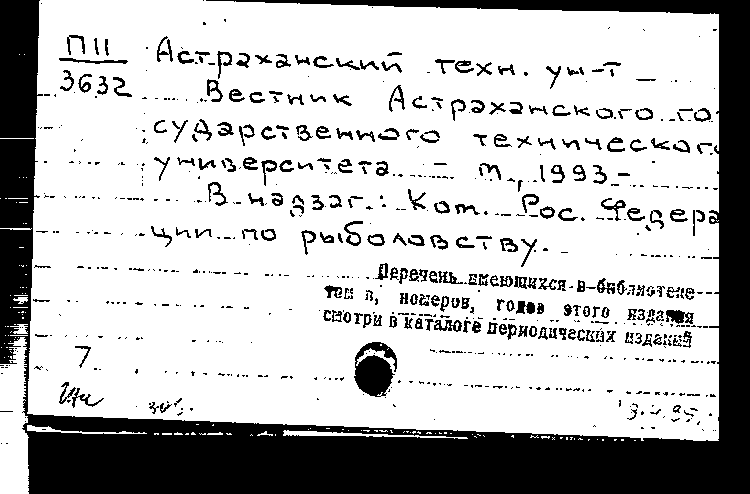 П11 Астраханский техн. ун-т
3632 Вестник Астраханского го
сударственного технического
университета. - М., 1993-
В надзаг.: Ком. Рос. Федера
ции по рыболовству.
Перечень имеющихся в библиотеке
томов, номеров, годов этого издания
смотри в каталоге периодических изданий
7